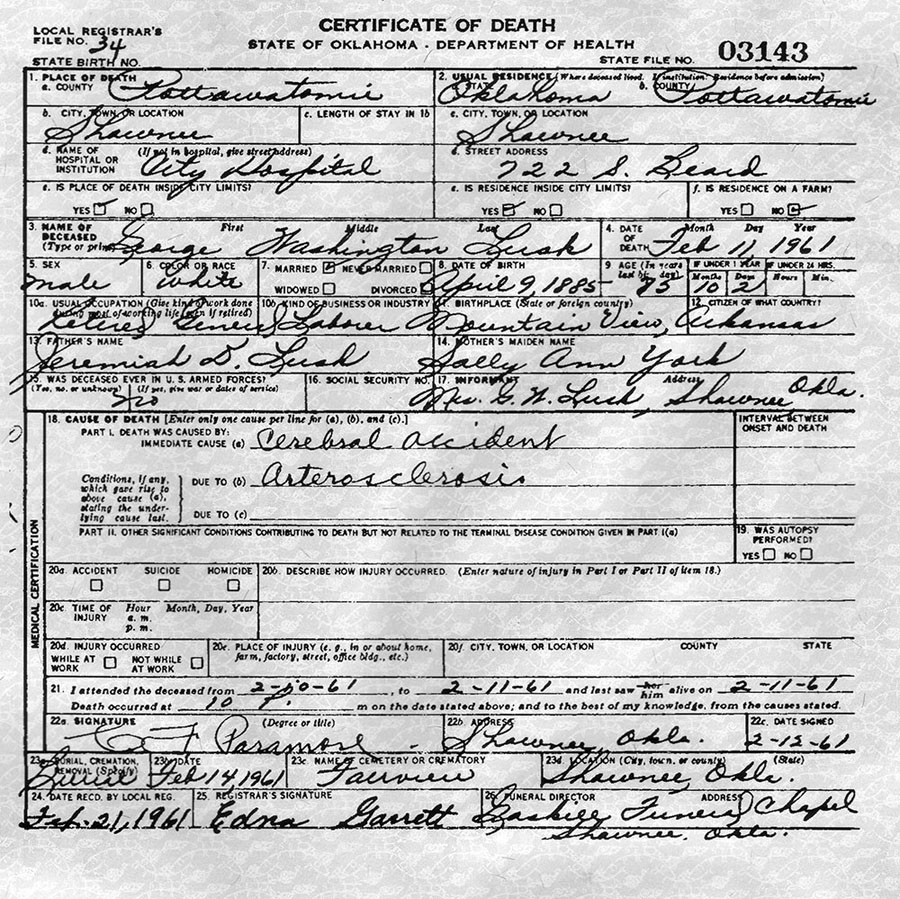 CERTIFICATE OF DEATH
LOCAL REGISTRAR'S
FILE NO. 34
STATE OF OKLAHOMA - DEPARTMENT OF HEALTH
STATE BIRTH NO.
STATE FILE NO. 03143
1. PLACE OF DEATH
a. COUNTY Pottawatomie
2. USUAL RESIDENCE (Where deceased lived. If institution: Residence before admission)
a. STATE Oklahoma b. COUNTY Pottawatomie
b. CITY, TOWN, OR LOCATION
Shawnee
c. LENGTH OF STAY IN 1b
c. CITY, TOWN, OR LOCATION
Shawnee
d. NAME OF HOSPITAL OR INSTITUTION (If not in hospital, give street address)
City Hospital
d. STREET ADDRESS
722 S. Beard
e. IS PLACE OF DEATH INSIDE CITY LIMITS?
YES NO
e. IS RESIDENCE INSIDE CITY LIMITS?
YES NO
f. IS RESIDENCE ON A FARM?
YES NO
3. NAME OF DECEASED (Type or print) First Middle Last
George Washington Lusk
4. DATE OF DEATH Month Day Year
Feb 11, 1961
5. SEX
male
6. COLOR OR RACE
White
7. MARRIED NEVER MARRIED
WIDOWED DIVORCED
8. DATE OF BIRTH
April 9, 1885
9. AGE (In years last birthday)
75
IF UNDER 1 YEAR
Months Days
10 2
IF UNDER 24 HRS.
Hours Min.
10a. USUAL OCCUPATION (Give kind of work done during most of working life, even if retired)
10b. KIND OF BUSINESS OR INDUSTRY
Retired General Laborer
11. BIRTHPLACE (State or foreign country)
Mountain View, Arkansas
12. CITIZEN OF WHAT COUNTRY?
13. FATHER'S NAME
Jeremiah D. Lusk
14. MOTHER'S MAIDEN NAME
Sally Ann York
15. WAS DECEASED EVER IN U.S. ARMED FORCES?
(Yes, no, or unknown) (If yes, give war or dates of service)
No
16. SOCIAL SECURITY NO.
17. INFORMANT Address
Mrs. G. W. Lusk, Shawnee Okla.
MEDICAL CERTIFICATION
18. CAUSE OF DEATH [Enter only one cause per line for (a), (b), and (c).]
INTERVAL BETWEEN ONSET AND DEATH
PART I. DEATH WAS CAUSED BY:
IMMEDIATE CAUSE (a) Cerebral accident
Conditions, if any, which gave rise to above cause (a), stating the underlying cause last.
DUE TO (b) Arterosclerosis
DUE TO (c)
PART II. OTHER SIGNIFICANT CONDITIONS CONTRIBUTING TO DEATH BUT NOT RELATED TO THE TERMINAL DISEASE CONDITION GIVEN IN PART I(a)
19. WAS AUTOPSY PERFORMED?
YES NO
20a. ACCIDENT SUICIDE HOMICIDE
20b. DESCRIBE HOW INJURY OCCURRED. (Enter nature of injury in Part I or Part II of item 18.)
20c. TIME OF INJURY Hour Month, Day, Year
a. m.
p. m.
20d. INJURY OCCURRED
WHILE AT WORK NOT WHILE AT WORK
20e. PLACE OF INJURY (e. g., in or about home, farm, factory, street, office bldg., etc.)
20f. CITY, TOWN, OR LOCATION COUNTY STATE
21. I attended the deceased from 2-10-61, to 2-11-61 and last saw her him alive on 2-11-61
Death occurred at 10 P. m on the date stated above; and to the best of my knowledge, from the causes stated.
22a. SIGNATURE (Degree or title)
22b. ADDRESS
Shawnee, Okla.
22c. DATE SIGNED
2-12-61
23a. BURIAL, CREMATION, REMOVAL (Specify)
Burial
23b. DATE
Feb 14, 1961
23c. NAME OF CEMETERY OR CREMATORY
Fairview
23d. LOCATION (City, town, or county) (State)
Shawnee, Okla.
24. DATE RECD. BY LOCAL REG.
Feb. 21, 1961
25. REGISTRAR'S SIGNATURE
Edna Garrett
26. FUNERAL DIRECTOR ADDRESS
Gaskill Funeral Chapel
Shawnee, Okla.